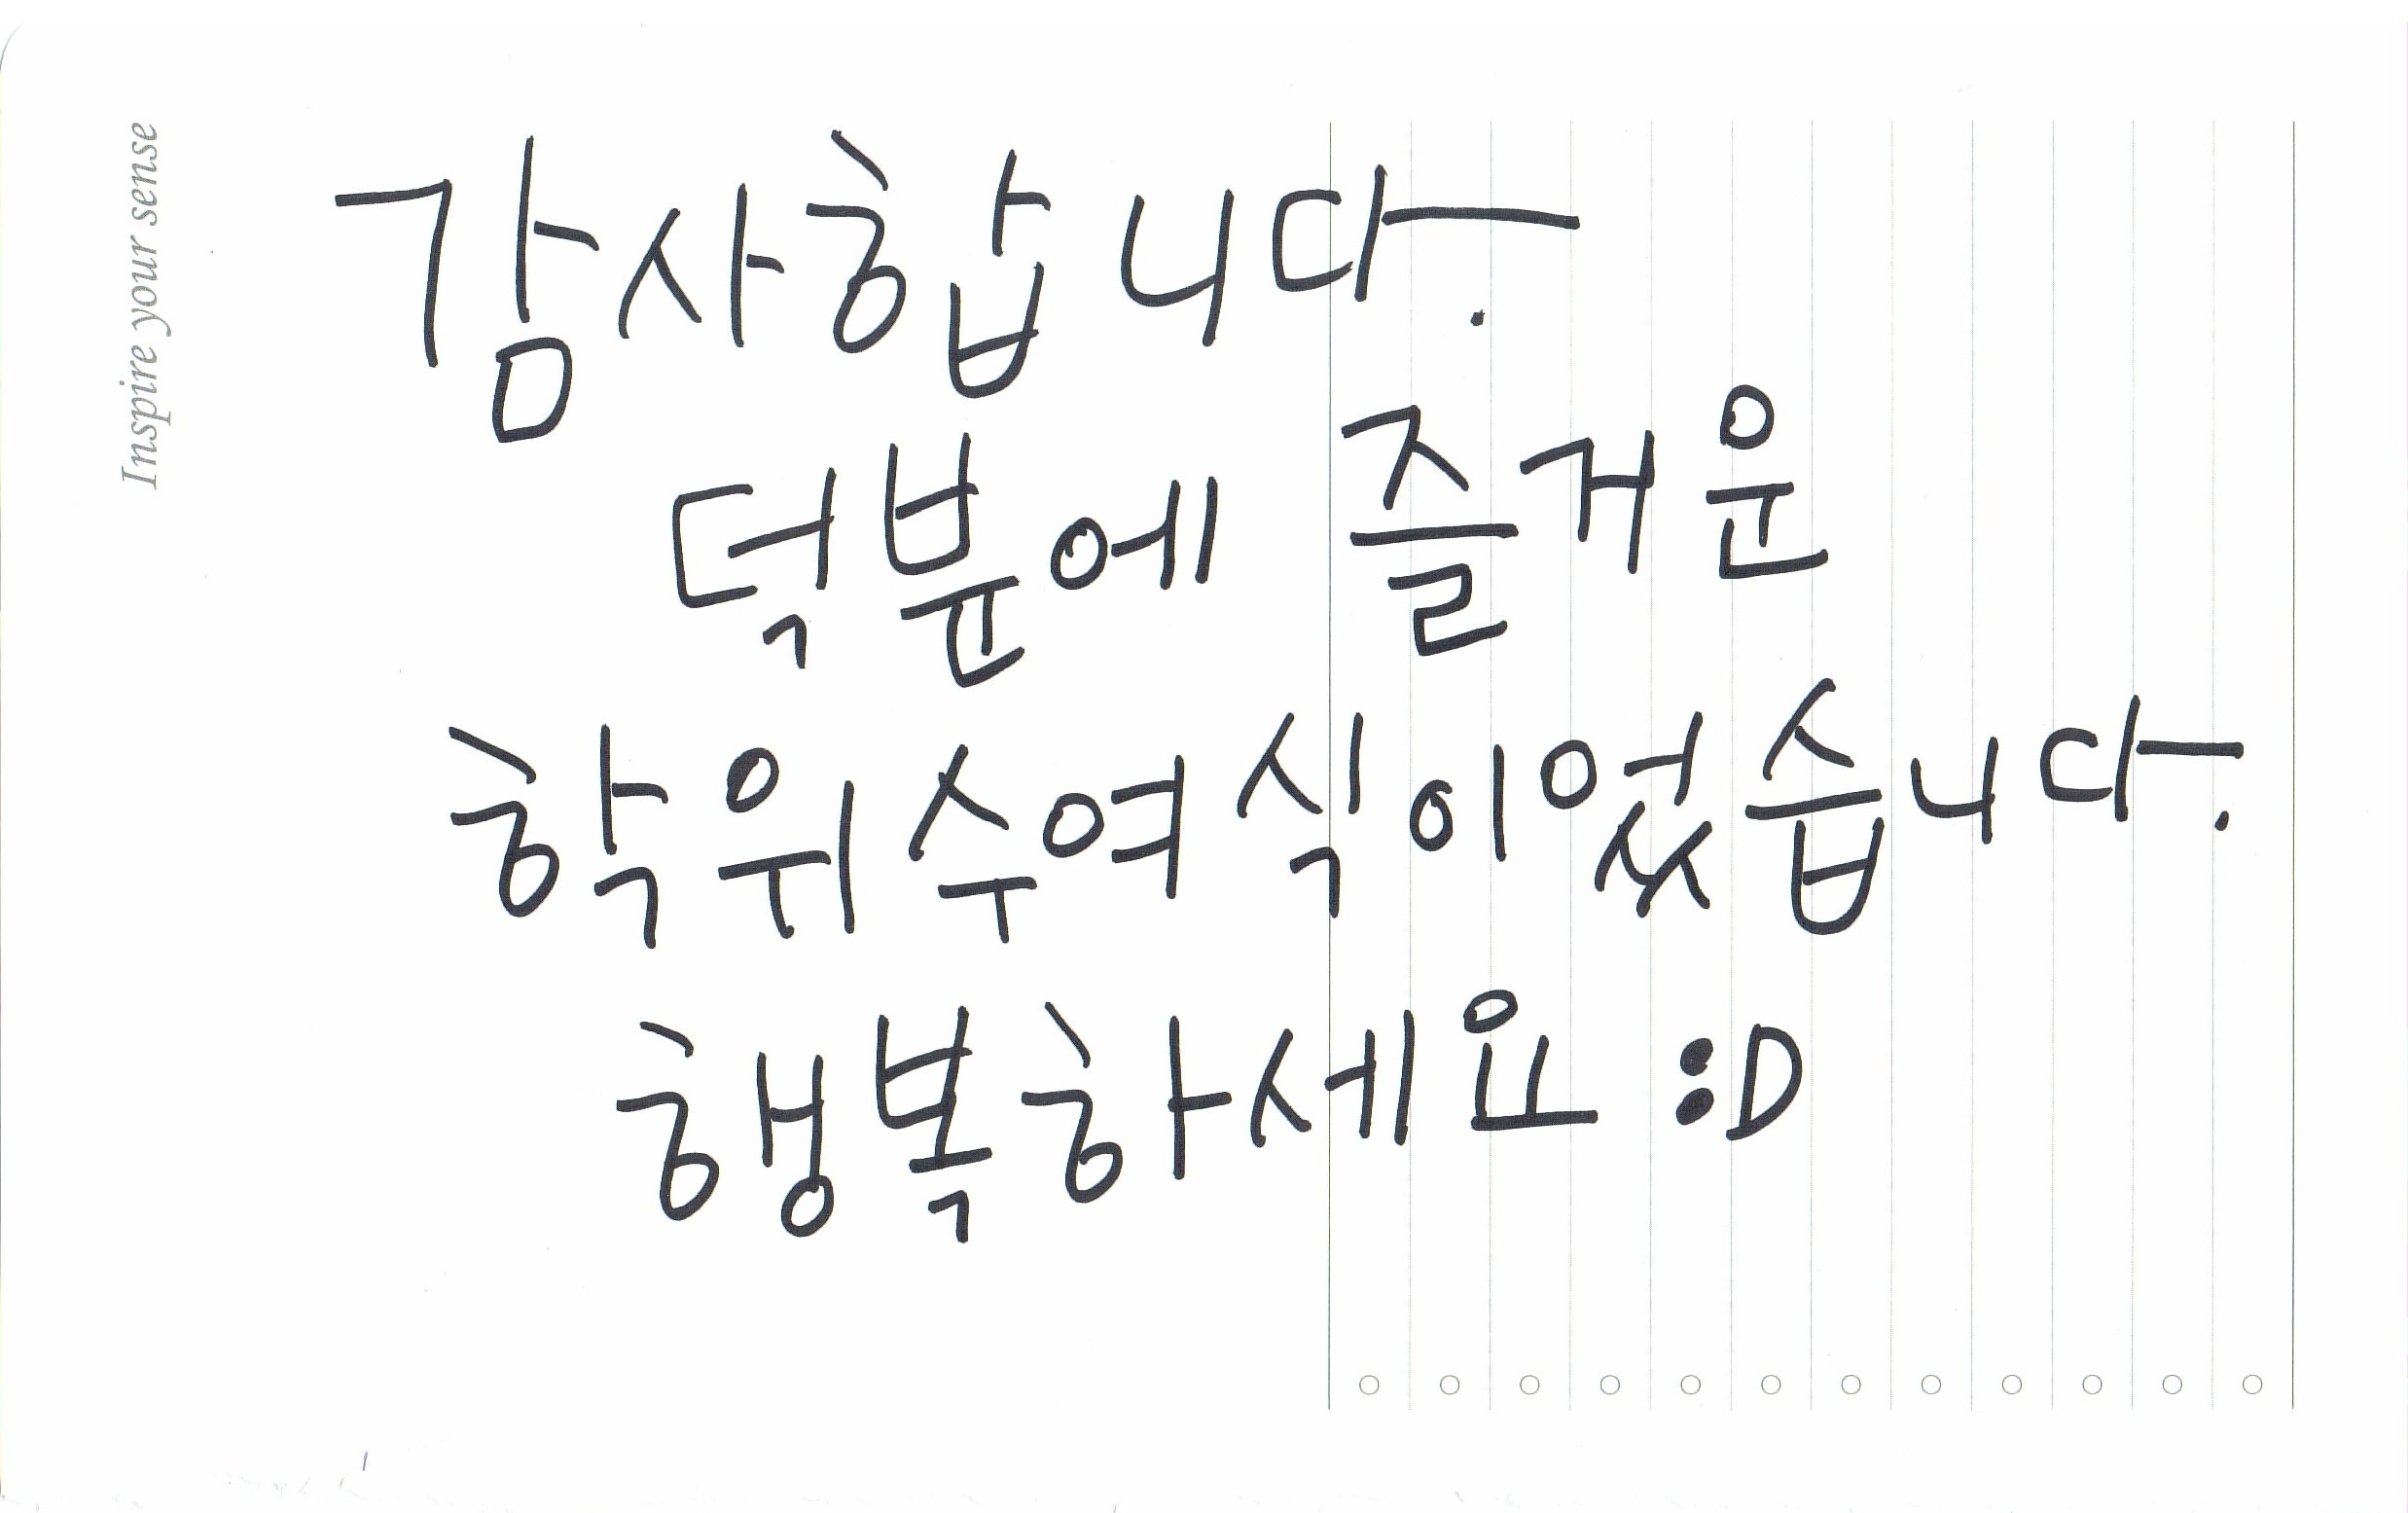 Inspire your sense
감사합니다.
덕분에 즐거운
학위수여식이었습니다.
행복하세요 :D